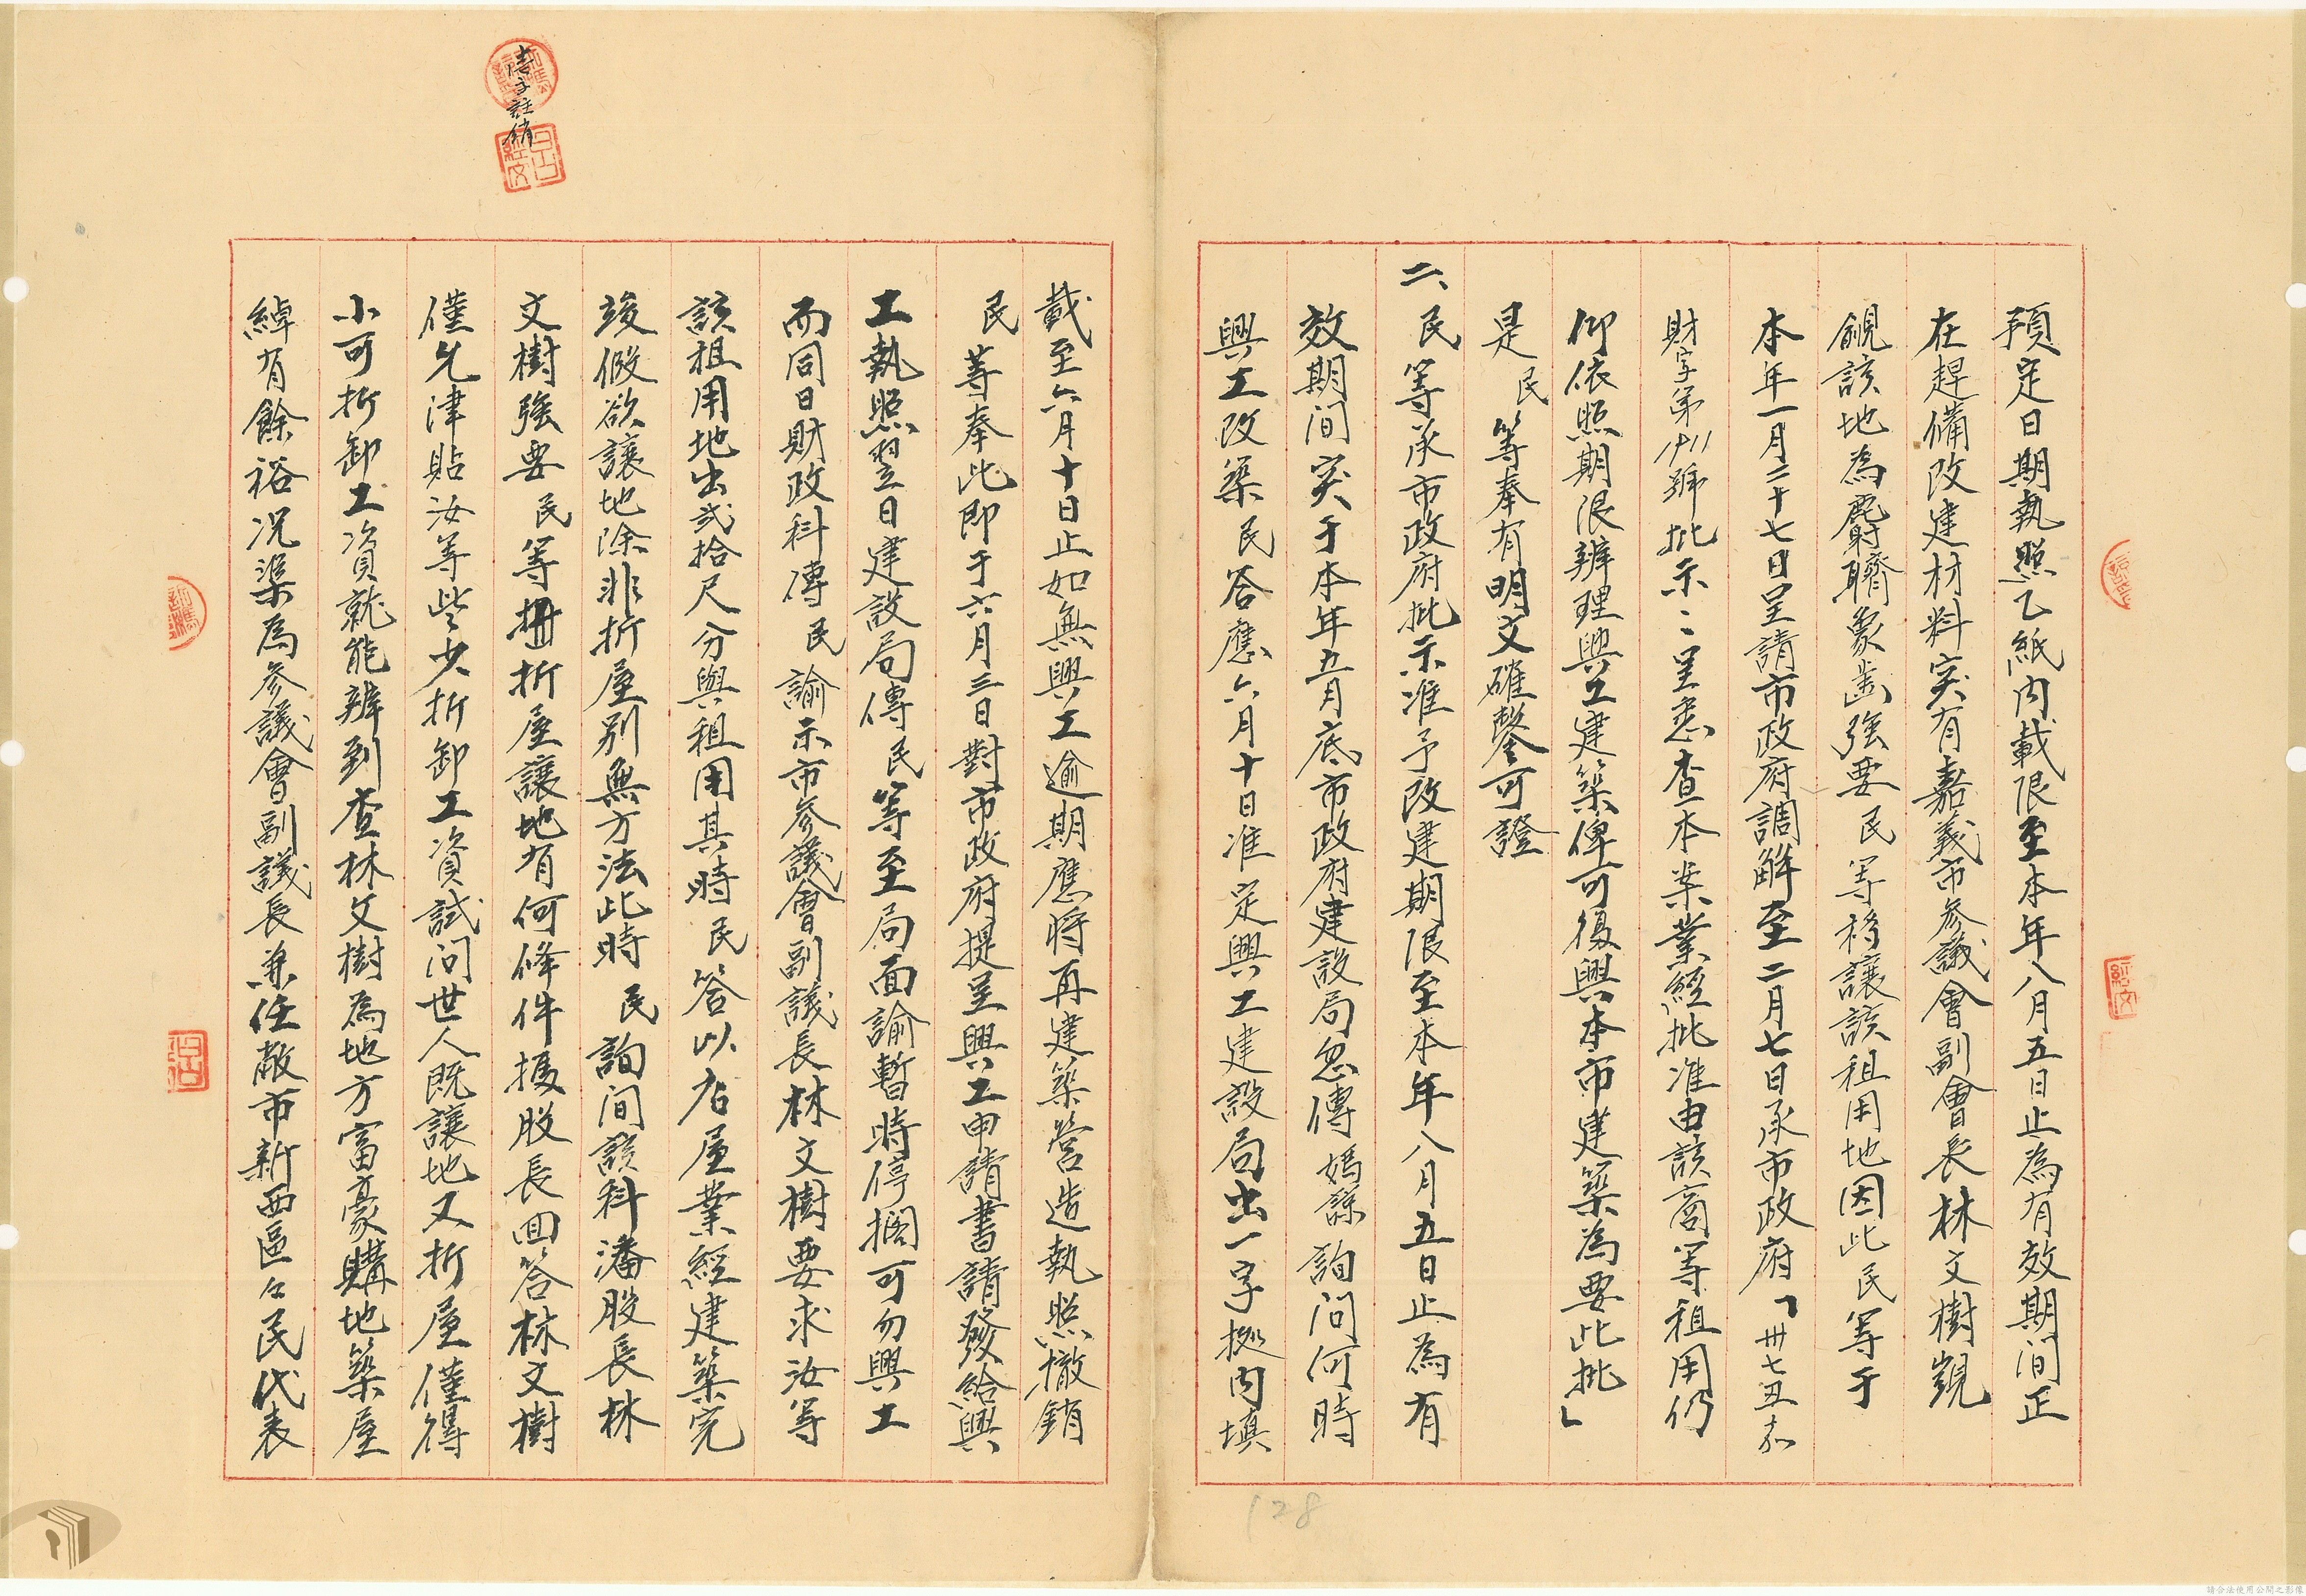 預定日期執照乙紙內載限至本年八月五日止為有效期间正
在趕備改建材料突有嘉義市参議會副會長林文樹覬
覦該地為麝臍象齒強要民等移讓該租用地因此民等于
本年一月二十七日呈請市政府調解至二月七日承市政府「卅七丑嘉
財字第1911號批示：呈悉查本案業經批准由該商等租用仍
仰依照期限辦理興工建築俾可復興本市建築為要此批」
是民等奉有明文確鑿可證
二、民等承市政府批示准予改建期限至本年八月五日止為有
效期间突于本年五月底市政府建設局忽傳媽諒詢问何時
興工改築民答應六月十日准定興工建設局出一字據内填
載至六月十日止如無興工逾期應将再建築營造執照撤銷
民等奉此即于六月三日對市政府提呈興工申請書請發給興
工執照翌日建設局傳民等至局面諭暫時停擱可勿興工
而同日財政科傳民諭示市参議會副議長林文樹要求汝等
該租用地出弍拾尺分與租用其時民答以店屋業經建築完
竣假欲讓地除非折屋别無方法此時民詢间該科潘股長林
文樹強要民等折屋讓地有何條件據股長回答林文樹
僅允津貼汝等些少折卸工資試问世人既讓地又折屋僅得
小可折卸工資就能辦到查林文樹為地方富豪購地築屋
綽有餘裕况渠為参議會副議長兼任敝市新西區公民代表
字註銷
128
請合法使用公開之影像